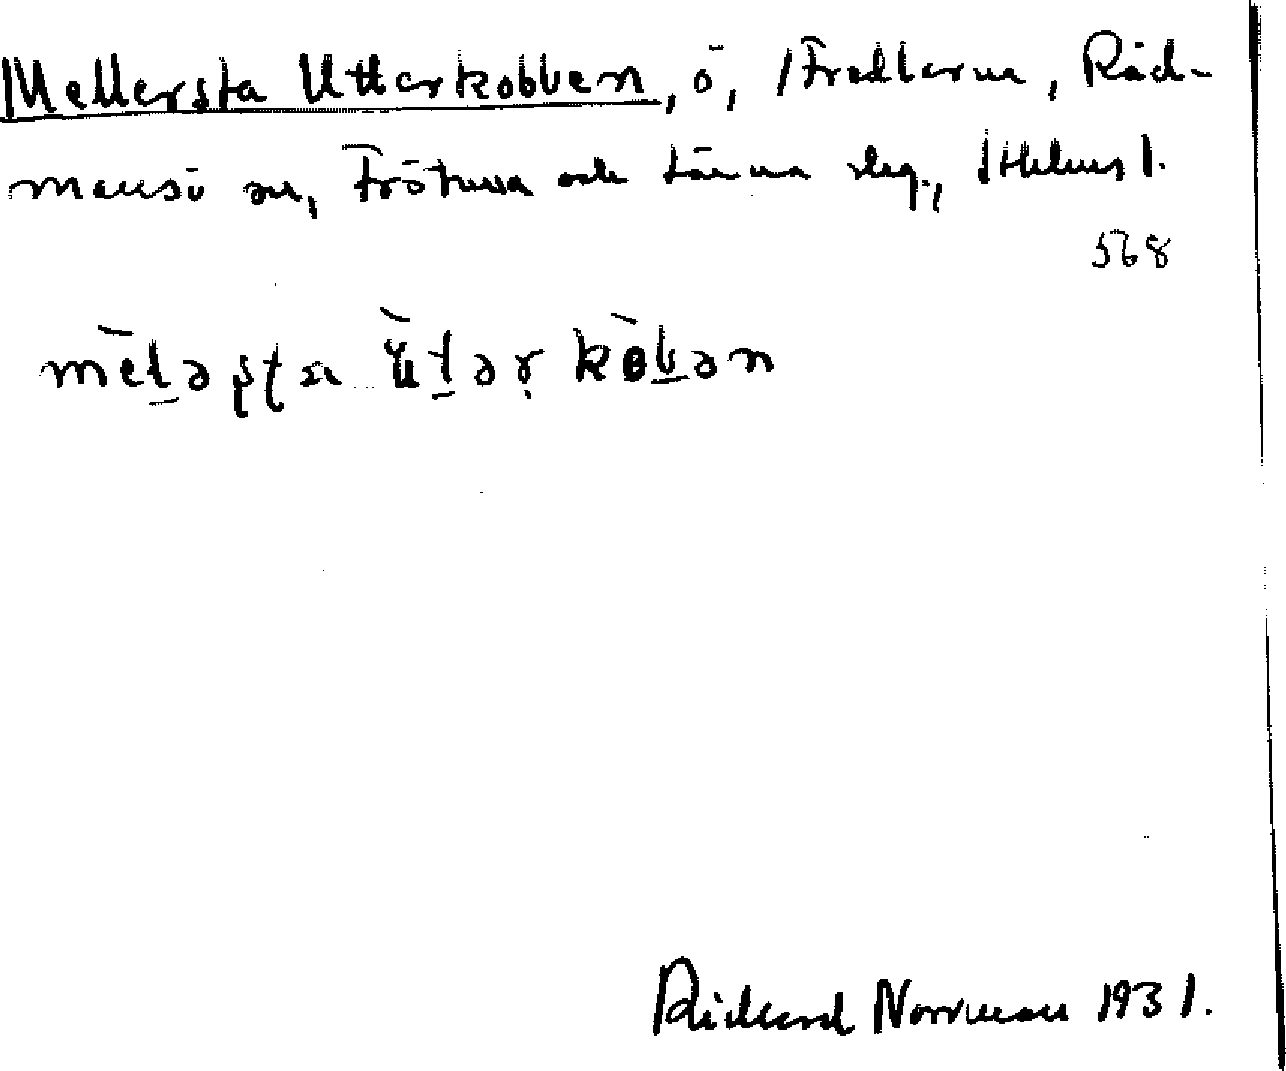 Mellersta Utterkobben, ö, /Fredlarna, Råd-
mansö sn, Frötuna och Länna slg., Sthlms l.
568
mèləʂʈa ùtər̥ kòbən
Rickard Norrman 1931.